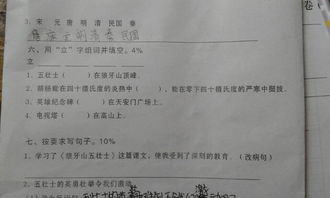 3. 宋 元 唐 明 清 民国 秦
唐 宋 元 明 清 民国
六、用“立”字组词并填空。4%
1. 五壮士( )在狼牙山顶峰。
2. 胡杨能在四十摄氏度的炎热中( ),能在零下四十摄氏度的严寒中挺拔。
3. 英雄纪念碑( )在天安门广场上。
4. 电视塔( )在高山上。
七、按要求写句子。10%
1. 学习了《狼牙山五壮士》这篇课文,使我受到了深刻的教育。(改病句)
2. 五壮士的英勇壮举令我们激动。